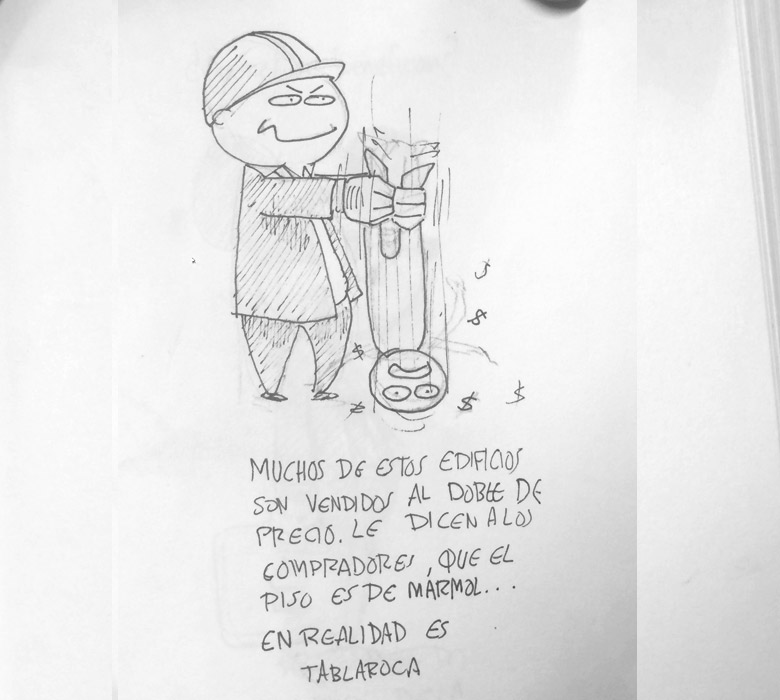 $
$
$
$
$
$
MUCHOS DE ESTOS EDIFICIOS
SON VENDIDOS AL DOBLE DE
PRECIO. LE DICEN A LOS
COMPRADORES, QUE EL
PISO ES DE MARMOL...
EN REALIDAD ES
TABLAROCA